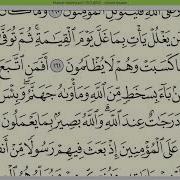 ٱللَّهِ فَلْيَتَوَكَّلِ ٱلْمُؤْمِنُونَ
مَن يَغْلُلْ يَأْتِ بِمَا غَلَّ يَوْمَ ٱلْقِيَٰمَةِ ثُمَّ تُوَفَّىٰ
مَّا كَسَبَتْ وَهُمْ لَا يُظْلَمُونَ ١٦١ أَفَمَنِ ٱتَّبَعَ
بَآءَ بِسَخَطٍ مِّنَ ٱللَّهِ وَمَأْوَىٰهُ جَهَنَّمُ وَبِئْسَ
دَرَجَٰتٌ عِندَ ٱللَّهِ وَٱللَّهُ بَصِيرٌۢ بِمَا يَعْمَلُونَ
عَلَى ٱلْمُؤْمِنِينَ إِذْ بَعَثَ فِيهِمْ رَسُولًا مِّنْ